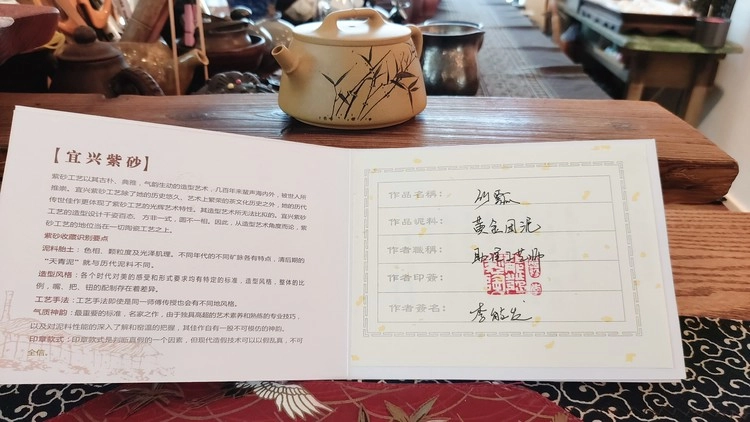 【宜兴紫砂】
紫砂工艺以其古朴、典雅，气韵生动的造型艺术，几百年来蜚声海内外，被世人所
推崇。宜兴紫砂工艺除了她的历史悠久、艺术上繁荣的茶文化历史之外，她的历代
传世佳作更体现了紫砂工艺的光辉艺术特性。其造型艺术所无法比和的。宜兴紫砂
工艺的造型设计千姿百态、方非一式，圆不一相。因此，从造型艺术角度而论，紫
砂工艺的地位当在一切陶瓷工艺之上。
紫砂收藏识别要点
泥料胎土：色相、颗粒度及光泽肌理。不同年代的不同矿脉各有特点，清后期的
“天青泥”就与历代泥料不同。
造型风格：各个时代对美的感受和形式要求均有特定的标准，造型风格，整体的比
例，嘴、把、钮的配制存在着差异。
工艺手法：工艺手法即使是同一师傅传授也会有不同地风格。
气质神韵：最重要的标准，名家之作，由于独具高超的艺术素养和熟练的专业技巧，
以及对泥料性能的深入了解和极温的把握，其佳作自有一般不可模仿的神韵。
印章款式：印章款式是判断真假的一个因素，但现代造假技术可以以假乱真，不可
全信。
作品名称：
作品泥料：黄金段泥
作者职称：
作者印鉴：
作者签名：李